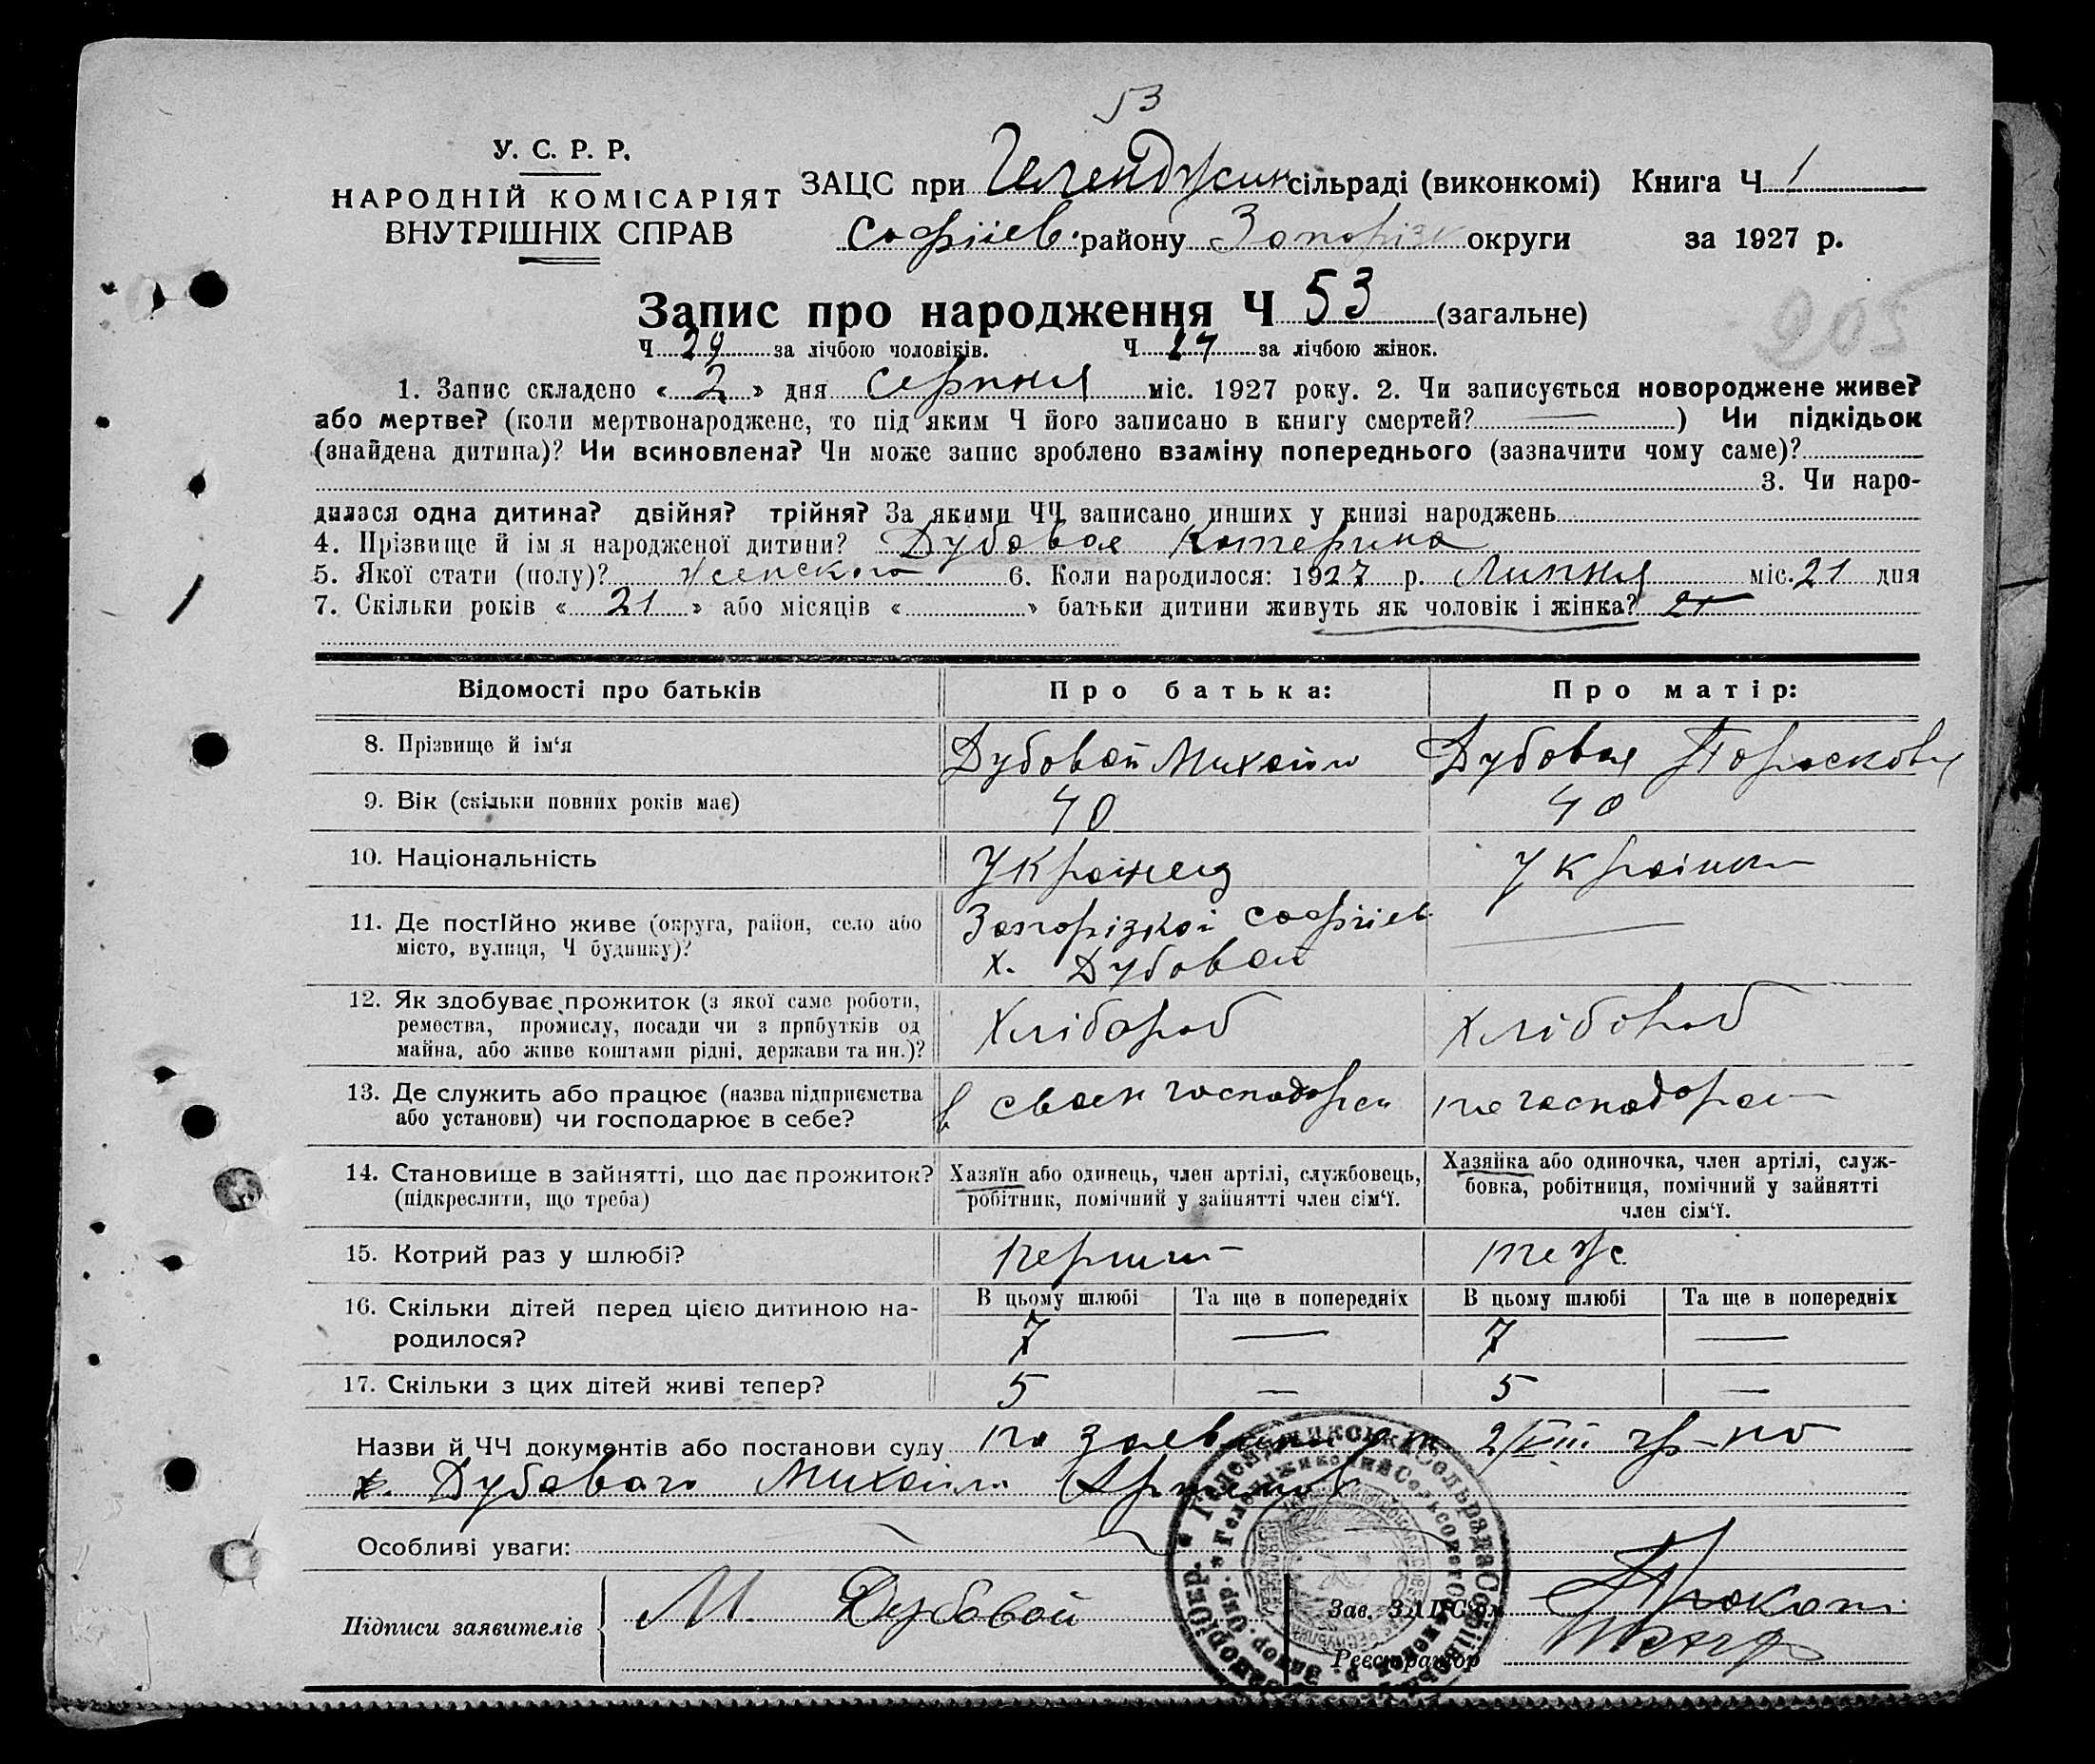 53
У. С. Р. Р.
НАРОДНІЙ КОМІСАРІЯТ
ВНУТРІШНІХ СПРАВ
ЗАЦС при Геленджик сільраді (виконкомі) Книга Ч 1
Софіїев. району Запоріз округи за 1927 р.
205
Запис про народження Ч 53 (загальне)
Ч 29 за лічбою чоловіків. Ч 24 за лічбою жінок.
1. Запис складено « 2 » дня серпня міс. 1927 року. 2. Чи записується новороджене живе?
або мертве? (коли мертвонароджене, то під яким Ч його записано в книгу смертей? — ) Чи підкідьок
(знайдена дитина)? Чи всиновлена? Чи може запис зроблено взаміну попереднього (зазначити чому саме)?
3. Чи наро-
дилася одна дитина? двійня? трійня? За якими ЧЧ записано инших у книзі народжень
4. Прізвище й ім я народженої дитини? Дубовая Катерина
5. Якої стати (полу)? женского 6. Коли народилося: 1927 р. Липня міс. 21 дня
7. Скільки років « 21 » або місяців « » батьки дитини живуть як чоловік і жінка? 21
Відомості про батьків Про батька: Про матір:
8. Прізвище й ім‘я Дубовой Михайло Дубовая Парасковя
9. Вік (скільки повних років має) 40 40
10. Національність Українец українка
11. Де постійно живе (округа, район, село або Запорізкої Софіїев —
місто, вулиця, Ч будинку)? х. Дубовой
12. Як здобуває прожиток (з якої саме роботи, Хлібороб Хлібороб
ремества, промислу, посади чи з прибутків од
майна, або живе коштами рідні, держави та ин.)?
13. Де служить або працює (назва підприємства в своем господарси по господарси
або установи) чи господарює в себе?
14. Становище в зайнятті, що дає прожиток? Хазяїн або одинець, член артілі, службовець, Хазяйка або одиночка, член артілі, служ-
(підкреслити, що треба) робітник, помічний у зайнятті член сім‘ї. бовка, робітниця, помічний у зайнятті
член сім‘ї.
15. Котрий раз у шлюбі? перший теж
16. Скільки дітей перед цією дитиною на- В цьому шлюбі Та ще в попередніх В цьому шлюбі Та ще в попередніх
родилося? 7 — 7 —
17. Скільки з цих дітей живі тепер? 5 — 5 —
Назви й ЧЧ документів або постанови суду по заевлению 2/VIII гр-но
х. Дубового Михайла Артемов
Особливі уваги:
Підписи заявителів М. Дубовой
Зав. ЗАЦСом Прокоп
Реєстратор